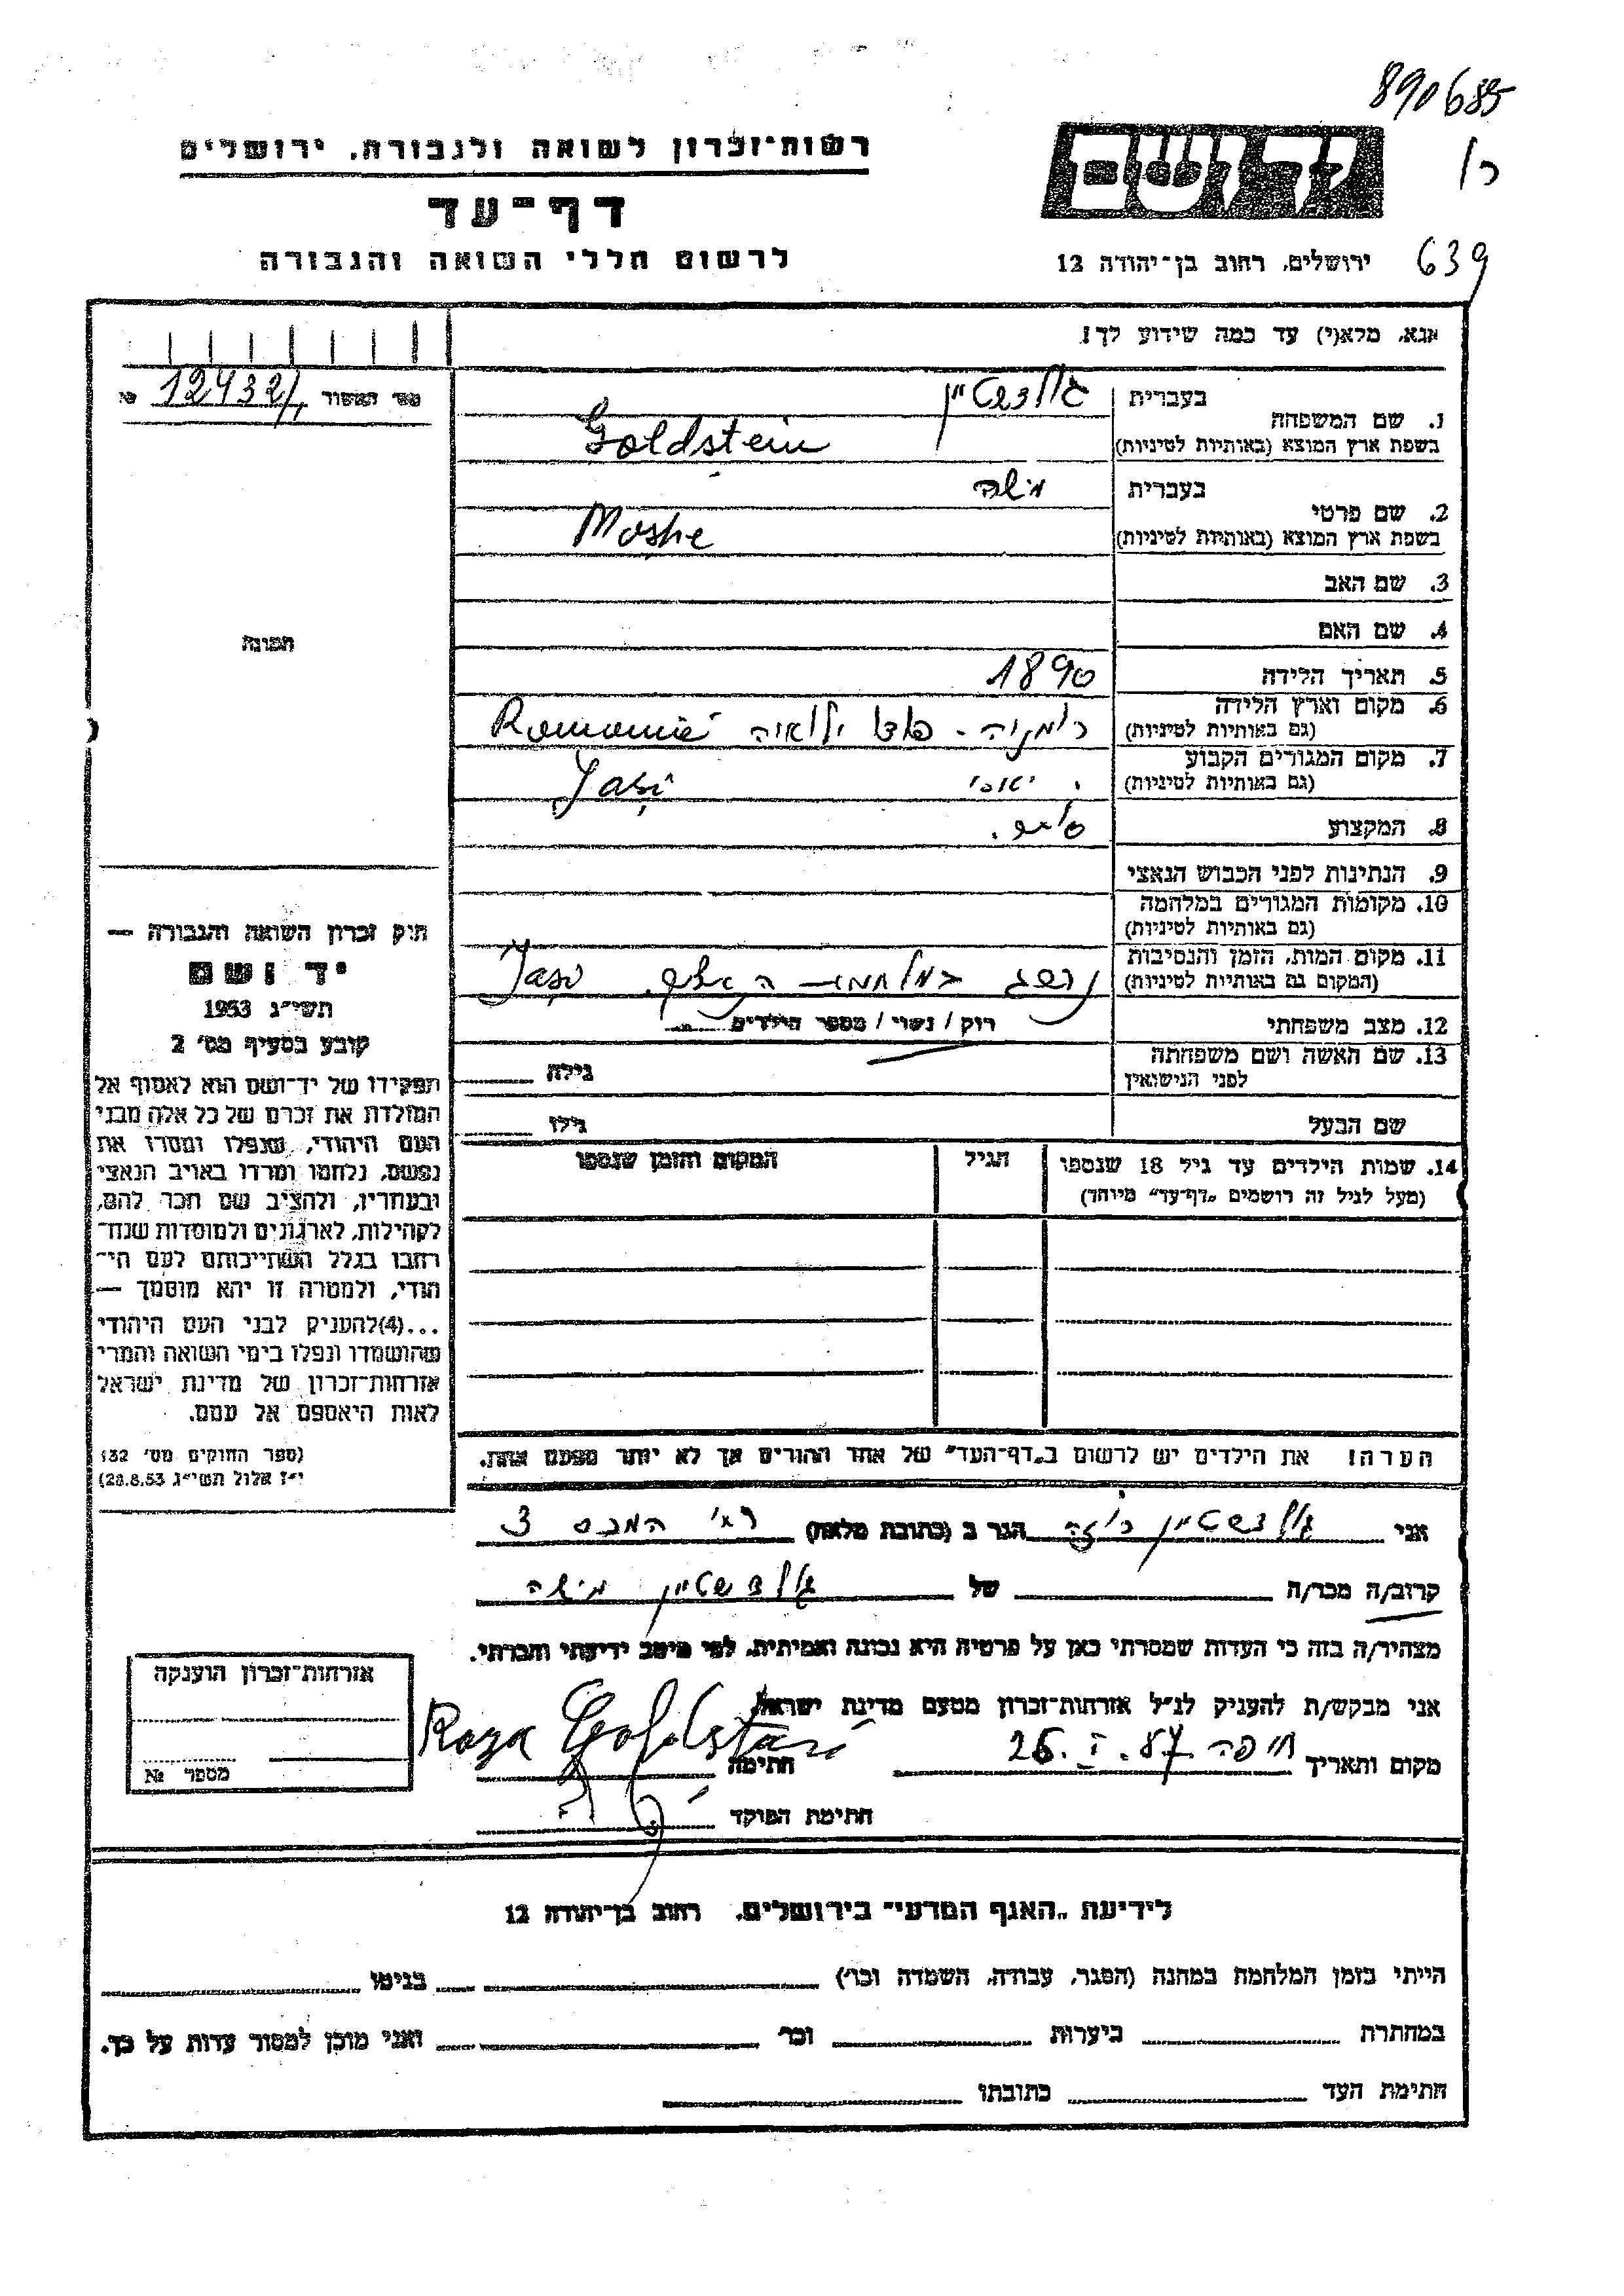 890685
רשות־זכרון לשואה ולגבורה, ירושלים
יד ושם
דף־עד
לרשום חללי השואה והגבורה
ירושלים, רחוב בן־יהודה 12
639
אנא, מלא(י) עד כמה שידוע לך!
מס' האשור 12432/1 №
1. שם המשפחה
בעברית גולדשטיין
בשפת ארץ המוצא (באותיות לטיניות) Goldstein
2. שם פרטי
בעברית משה
בשפת ארץ המוצא (באותיות לטיניות) Moshe
3. שם האב
4. שם האם
תמונה
5. תאריך הלידה 1890
6. מקום וארץ הלידה
(גם באותיות לטיניות) רומניה - Romania
7. מקום המגורים הקבוע
(גם באותיות לטיניות) יאסי Jași
8. המקצוע
9. הנתינות לפני הכבוש הנאצי
10. מקומות המגורים במלחמה
(גם באותיות לטיניות)
11. מקום המות, הזמן והנסיבות
(המקום גם באותיות לטיניות) Jași
12. מצב משפחתי רוק / נשוי / מספר הילדים
13. שם האשה ושם משפחתה
לפני הנישואין גילה
שם הבעל גילו
14. שמות הילדים עד גיל 18 שנספו
(מעל לגיל זה רושמים „דף־עד” מיוחד)
הגיל
המקום והזמן שנספו
חוק זכרון השואה והגבורה —
יד ושם
תשי״ג 1953
קובע בסעיף מס' 2
תפקידו של יד־ושם הוא לאסוף אל
המולדת את זכרם של כל אלה מבני
העם היהודי, שנפלו ומסרו את
נפשם, נלחמו ומרדו באויב הנאצי
ובעוזריו, ולהציב שם וזכר להם,
לקהילות, לארגונים ולמוסדות שנח־
רבו בגלל השתייכותם לעם הי־
הודי, ולמטרה זו יהא מוסמך —
...(4)להעניק לבני העם היהודי
שהושמדו ונפלו בימי השואה והמרי
אזרחות־זכרון של מדינת ישראל
לאות היאספם אל עמם.
(ספר החוקים מס' 132
י״ז אלול תשי״ג 28.8.53)
הערה! את הילדים יש לרשום ב„דף־העד” של אחד ההורים אך לא יותר מפעם אחת.
אני גולדשטיין רוזה הגר ב (כתובת מלאה) 3
קרוב/ה מכר/ה של גולדשטיין משה
מצהיר/ה בזה כי העדות שמסרתי כאן על פרטיה היא נכונה ואמיתית, לפי מיטב ידיעתי והכרתי.
אני מבקש/ת להעניק לנ״ל אזרחות־זכרון מטעם מדינת ישראל
מקום ותאריך חיפה 26. חתימה Roza Goldstain
חתימת הפוקד
אזרחות־זכרון הוענקה
מספר №
לידיעת „האגף המדעי” בירושלים, רחוב בן־יהודה 12
הייתי בזמן המלחמה במחנה (הסגר, עבודה, השמדה וכו') בגיטו
במחתרת ביערות וכו' ואני מוכן למסור עדות על כך.
חתימת העד כתובתו